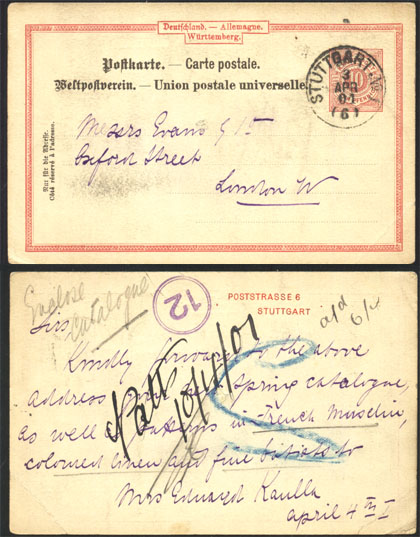 Deutschland. — Allemagne.
Württemberg.
Postkarte. — Carte postale.
Weltpostverein. — Union postale universelle.
STUTTGART
3
APR
01
6
Nur für die Adresse.
Côté réservé à l'adresse.
Messrs Evans
Oxford Street
London W
Enclose
Catalogue
12
POSTSTRASSE 6
STUTTGART
Sirs
Kindly forward to the above
address your Spring catalogue,
as well patterns in French Muslin,
coloured linen and fine batists to
Mrs Eduard Kaulla
april 4th
Patt